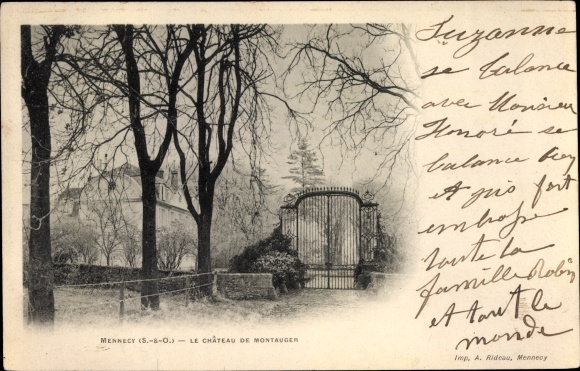 Suzanne
se balance
avec Monsieur
Honoré se
balance
et puis fort
embrasse
toute la
famille Robin
et tout le
monde
MENNECY (S.-&-O.) — LE CHÂTEAU DE MONTAUGER
Imp. A. Rideau, Mennecy